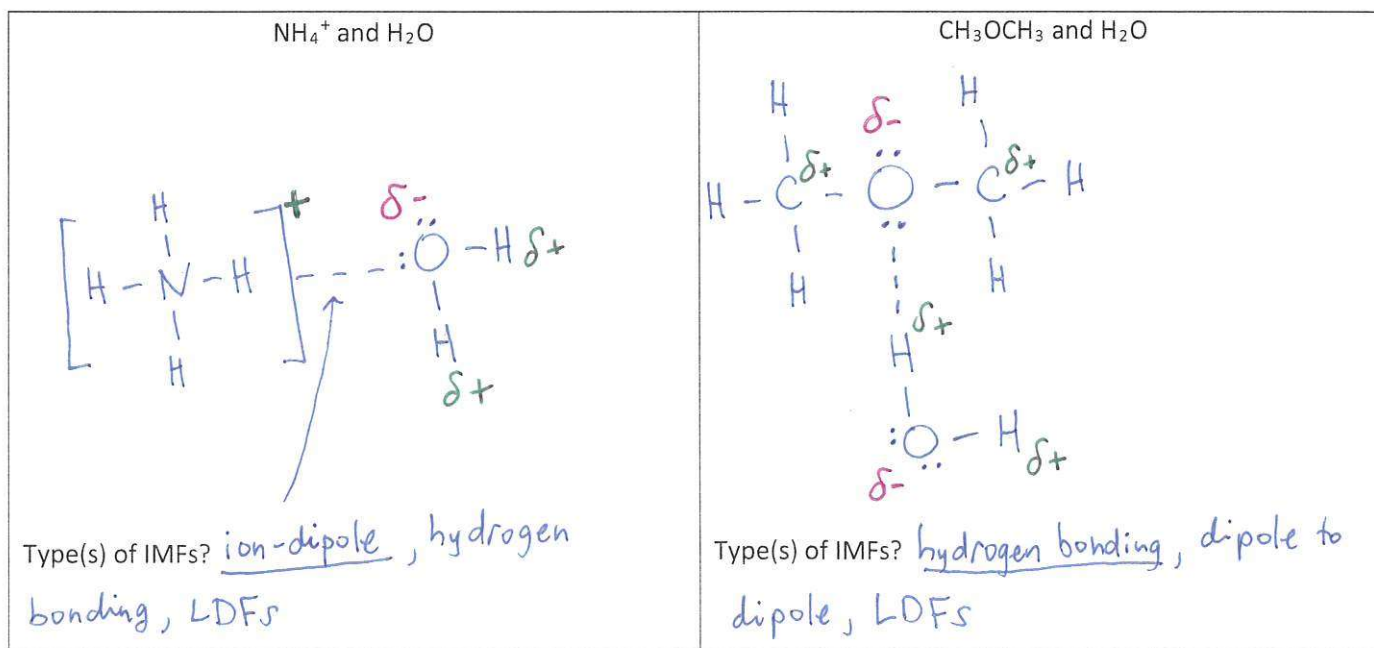 NH₄⁺ and H₂O
H
δ-
[H - N - H]⁺ --- :Ö - H δ+
H
H
δ+
Type(s) of IMFs? ion-dipole, hydrogen
bonding, LDFs
CH₃OCH₃ and H₂O
H δ- H
δ+ δ+
H - C - O - C - H
H H
δ+
H
:O - H δ+
δ-
Type(s) of IMFs? hydrogen bonding, dipole to
dipole, LDFs